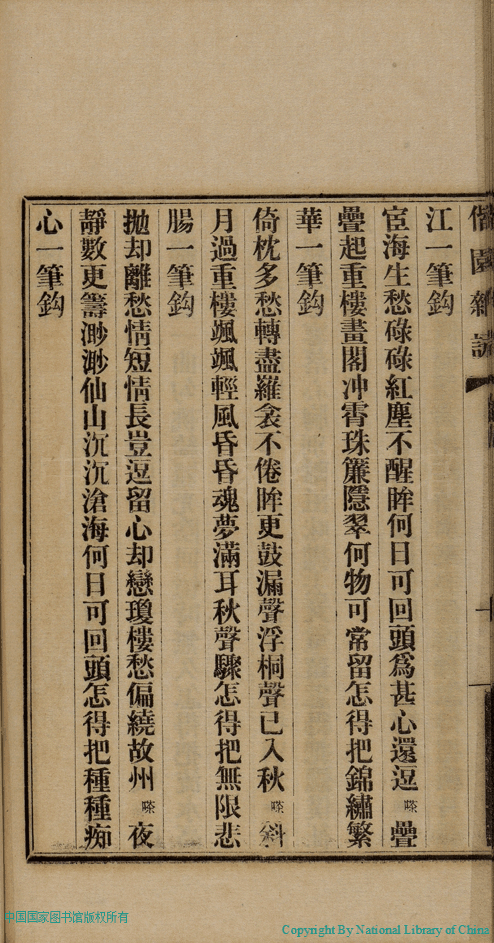 江一筆鈎
宦海生愁碌碌紅塵不醒眸何日可回頭為甚心還逗嗏疊
疊起重樓畫閣冲霄珠簾隱翠何物可常留怎得把錦繡繁
華一筆鈎
倚枕多愁轉盡羅衾不倦眸更鼓漏聲浮桐聲已入秋嗏斜
月過重樓颯颯輕風昏昏魂夢滿耳秋聲驟怎得把無限悲
腸一筆鈎
拋却離愁情短情長豈逗留心却戀瓊樓愁偏繞故州嗏夜
靜數更籌渺渺仙山沉沉滄海何日可回頭怎得把種種痴
心一筆鈎
中国国家图书馆版权所有
Copyright By National Library of China